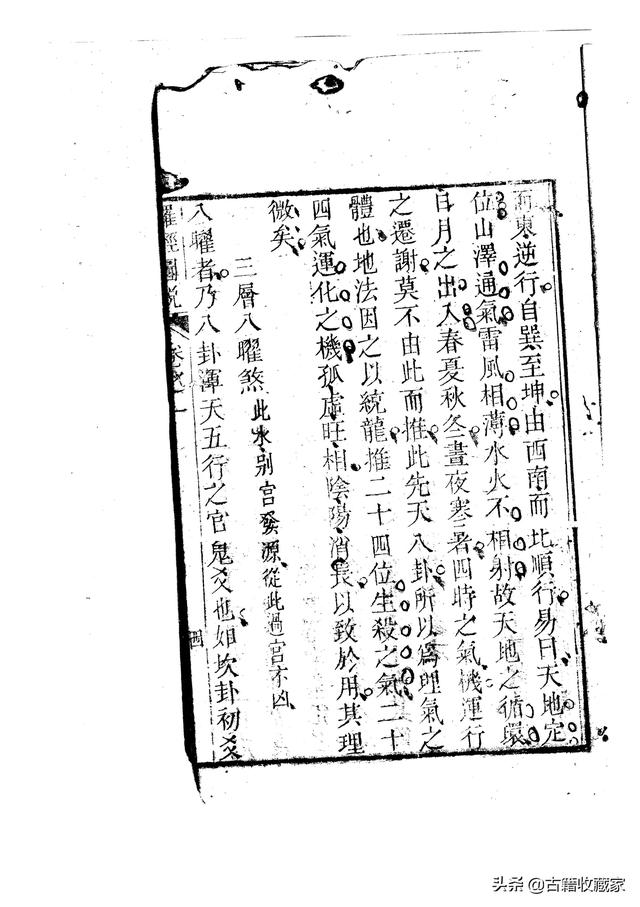 而東逆行自巽至坤由西南而北順行易曰天地定
位山澤通氣雷風相薄水火不相射故天地之循環
日月之出入春夏秋冬晝夜寒暑四時之氣機運行
之遷謝莫不由此而推此先天八卦所以爲理氣之
體也地法因之以統龍推二十四位生殺之氣二十
四氣運化之機孤虛旺相陰陽消長以致於用其理
微矣
三層八曜煞 此水别宮發源從此過宮不凶
八曜者乃八卦渾天五行之官鬼爻也如坎卦初爻
羅經圖説 卷之一 四
头条 @古籍收藏家